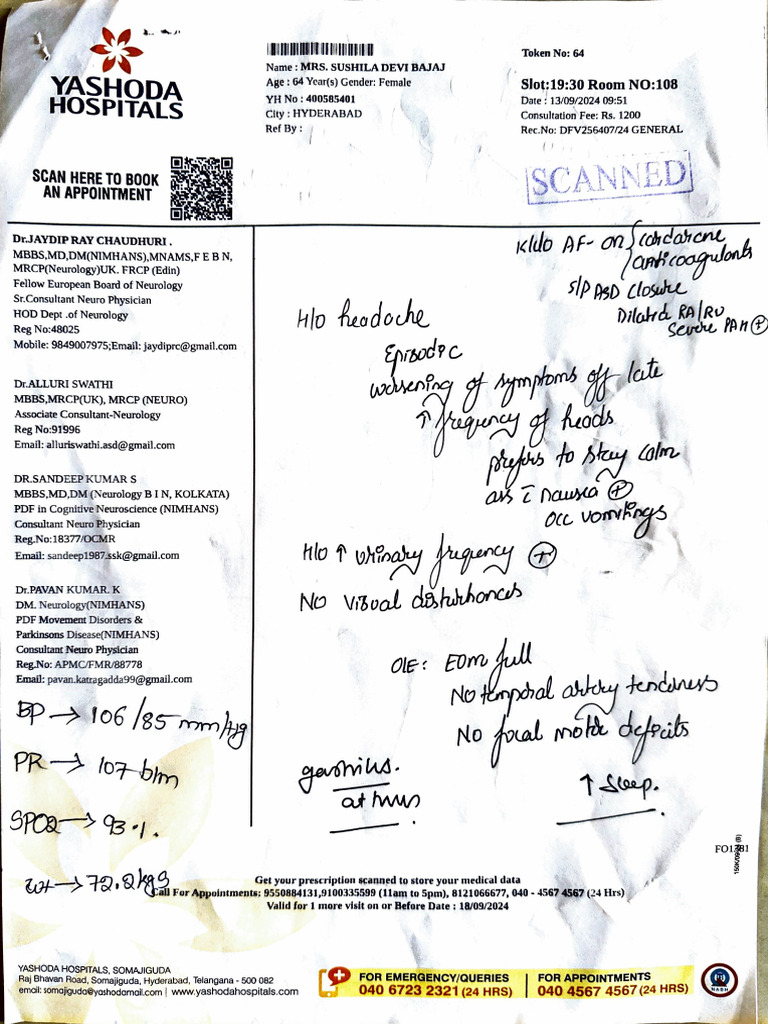 YASHODA
HOSPITALS
SCAN HERE TO BOOK
AN APPOINTMENT
Name : MRS. SUSHILA DEVI BAJAJ
Age : 64 Year(s) Gender: Female
YH No : 400585401
City : HYDERABAD
Ref By :
Token No: 64
Slot:19:30 Room NO:108
Date : 13/09/2024 09:51
Consultation Fee: Rs. 1200
Rec.No: DFV256407/24 GENERAL
SCANNED
Dr.JAYDIP RAY CHAUDHURI .
MBBS,MD,DM(NIMHANS),MNAMS,F E B N,
MRCP(Neurology)UK. FRCP (Edin)
Fellow European Board of Neurology
Sr.Consultant Neuro Physician
HOD Dept .of Neurology
Reg No:48025
Mobile: 9849007975;Email: jaydiprc@gmail.com
Dr.ALLURI SWATHI
MBBS,MRCP(UK), MRCP (NEURO)
Associate Consultant-Neurology
Reg No:91996
Email: alluriswathi.asd@gmail.com
DR.SANDEEP KUMAR S
MBBS,MD,DM (Neurology B I N, KOLKATA)
PDF in Cognitive Neuroscience (NIMHANS)
Consultant Neuro Physician
Reg.No:18377/OCMR
Email: sandeep1987.ssk@gmail.com
Dr.PAVAN KUMAR. K
DM. Neurology(NIMHANS)
PDF Movement Disorders &
Parkinsons Disease(NIMHANS)
Consultant Neuro Physician
Reg.No: APMC/FMR/88778
Email: pavan.katragadda99@gmail.com
BP → 106/85 mm/Hg
PR → 107 b/m
SPO2 → 93 %.
wt → 72.2kgs
K/c/o AF - on { cordarone
anticoagulants
S/P ASD closure
Dilated RA/RV
Severe PAH +
H/O headache
Episodic
worsening of symptoms off late
↑ frequency of heads
prefers to stay calm
ass c nausea +
occ vomitings
H/O ↑ urinary frequency +
NO visual disturbances
O/E: EOM full
No temporal artery tenderness
No focal motor deficits
↑ Sleep.
FO1381
Get your prescription scanned to store your medical data
Call For Appointments: 9550884131,9100335599 (11am to 5pm), 8121066677, 040 - 4567 4567 (24 Hrs)
Valid for 1 more visit on or Before Date : 18/09/2024
YASHODA HOSPITALS, SOMAJIGUDA
Raj Bhavan Road, Somajiguda, Hyderabad, Telangana - 500 082
email: somajiguda@yashodamail.com | www.yashodahospitals.com
FOR EMERGENCY/QUERIES
040 6723 2321 (24 HRS)
FOR APPOINTMENTS
040 4567 4567 (24 HRS)
NABH